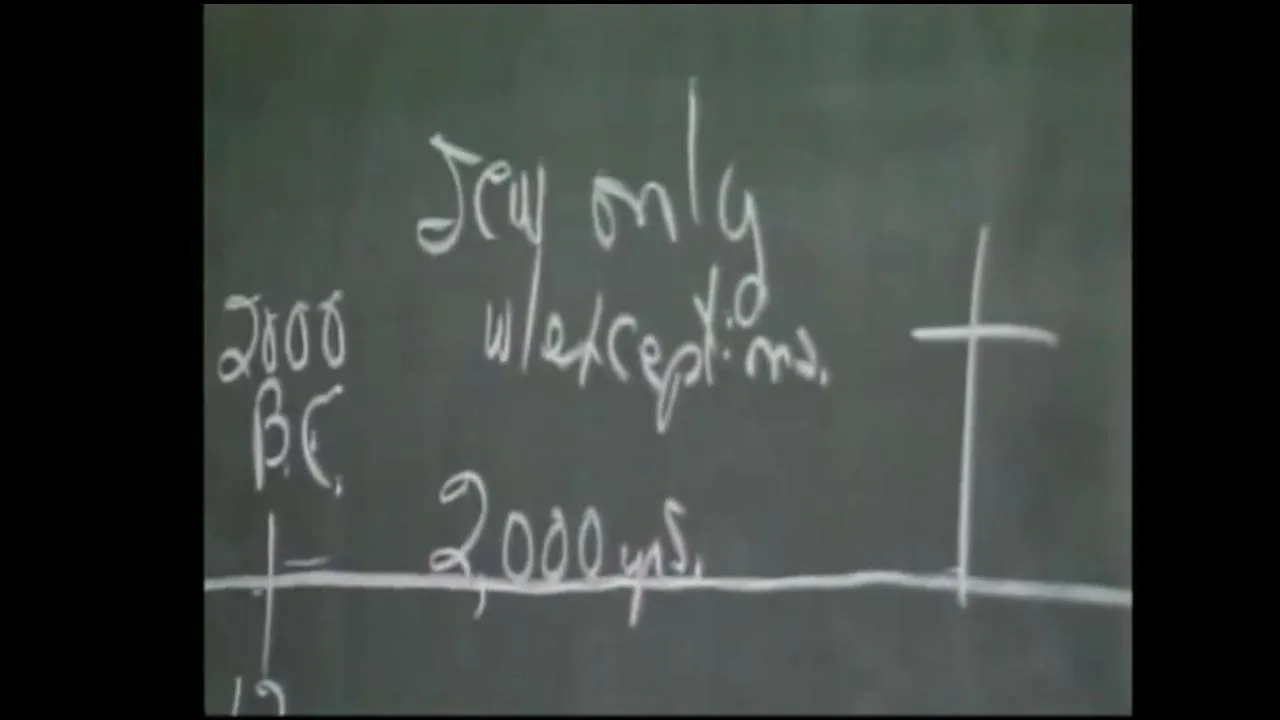 Jew only
w/exceptions.
2000
B.C.
2,000 yrs.
12